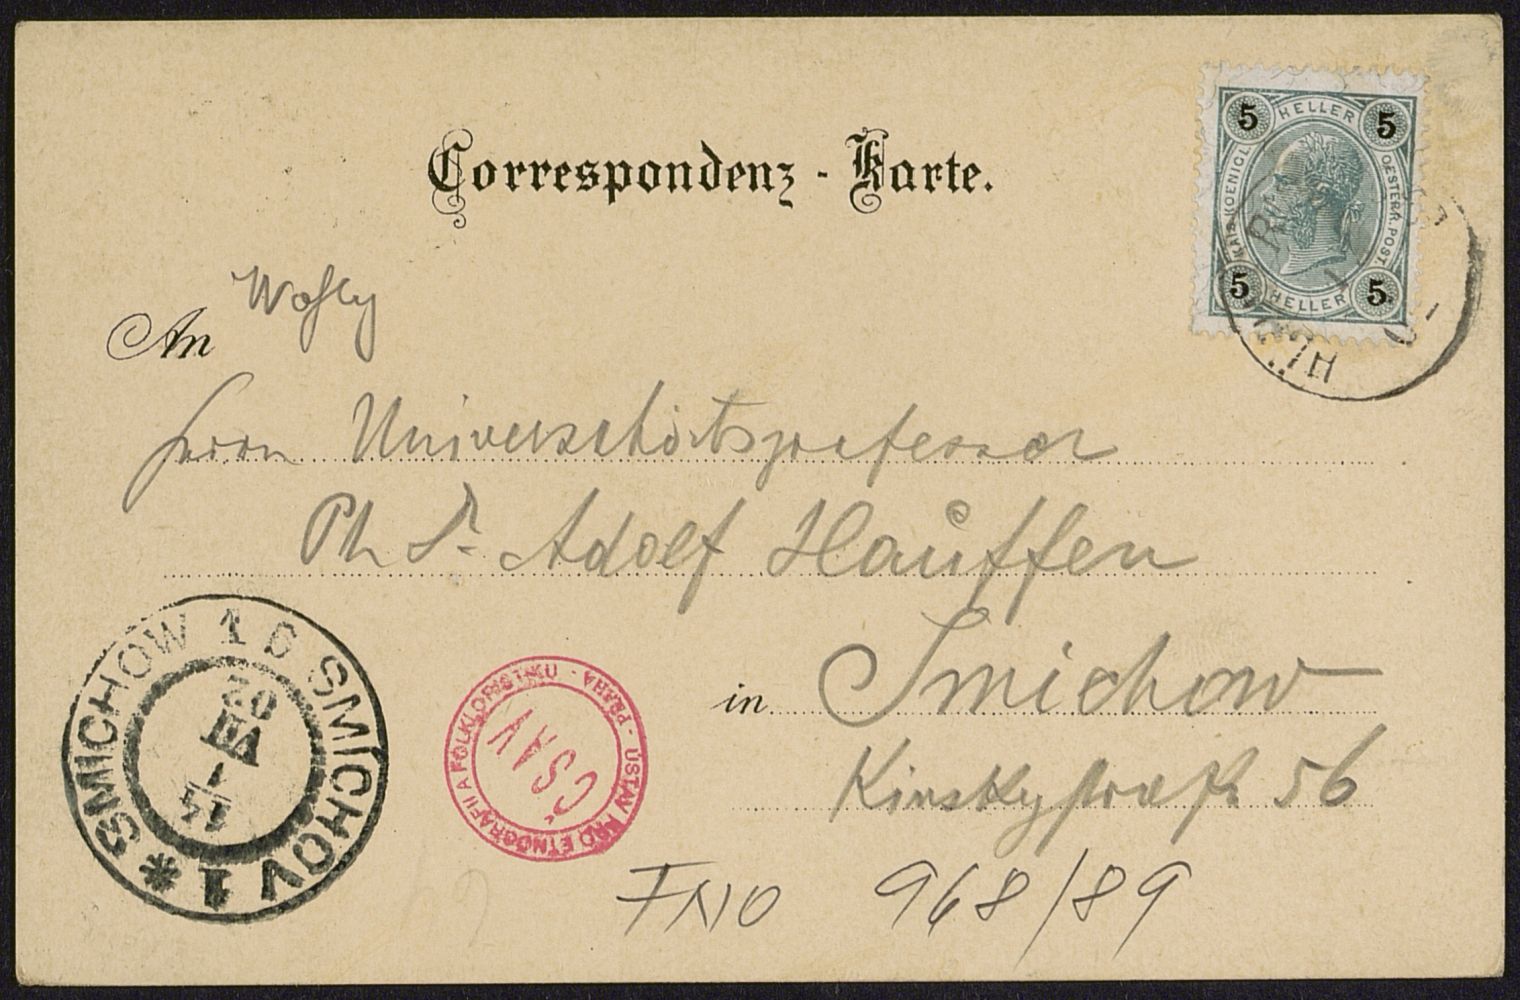 Correspondenz-Karte.
5 HELLER 5
KAIS. KOENIGL.
OESTERR. POST.
5 HELLER 5
An
Herrn Universitätsprofessor
Ph Dr Adolf Hauffen
in Smichow
Kinskystraße 56
SMICHOW 1 SMICHOV 1 *
02
VII
ÚSTAV PRO ETNOGRAFII A FOLKLORISTIKU - PRAHA -
ČSAV
FNO 968/89